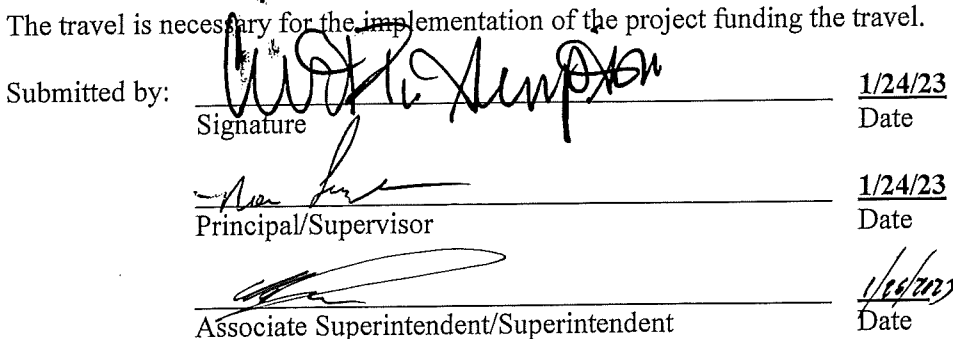 The travel is necessary for the implementation of the project funding the travel.
Submitted by: 1/24/23
Signature Date
1/24/23
Principal/Supervisor Date
Associate Superintendent/Superintendent Date